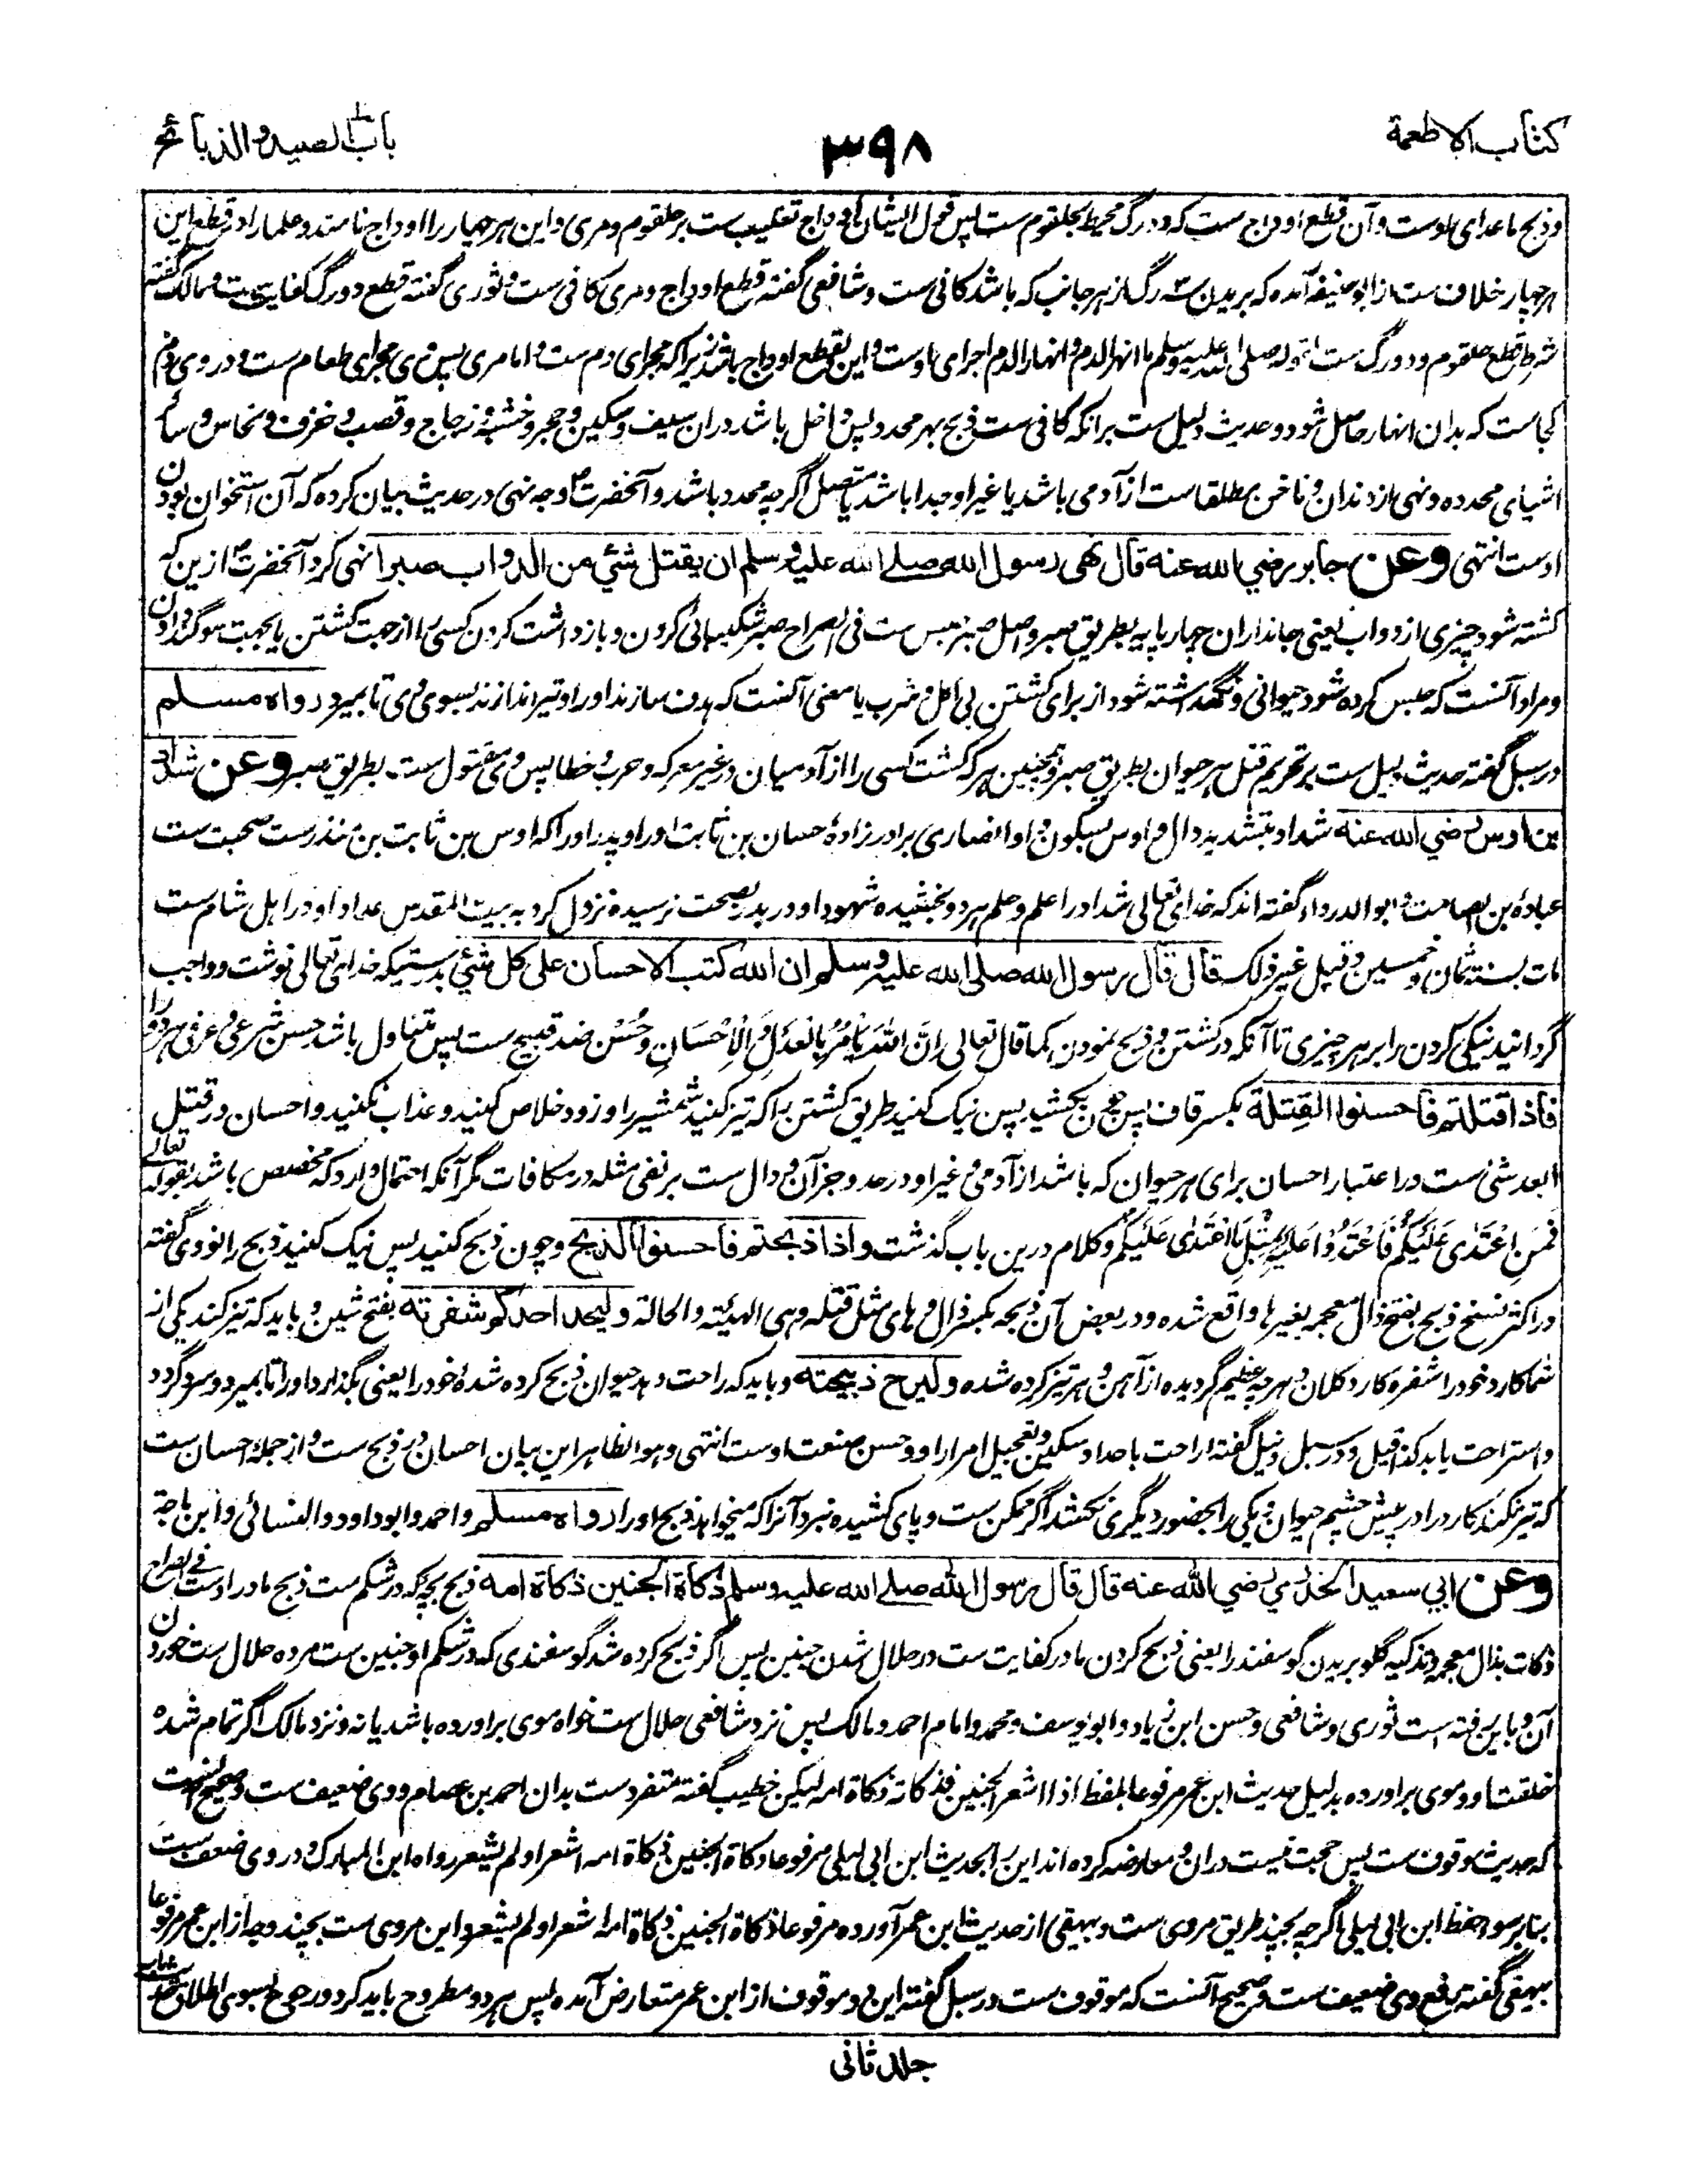 کتاب الاطعمة
۳۹۸
باب الصید والذبائح
و ذبح ماعدای اوست و آن قطع اوداج ست که دو رگ محیط بحلقوم ست پس قول ایشان اوداج تغلیب ست بر حلقوم و مری و این هر چهار را اوداج نامند و علما را در قطع این
هر چهار خلاف ست از ابو حنیفه آمده که بریدن سه رگ از هر جانب که باشد کافی ست و شافعی گفته قطع اوداج و مری کافی ست و ثوری گفته قطع دو رگ کفایت ست و مالک گفته
شرط قطع حلقوم و دو رگ ست لقوله صلی الله علیه وسلم ما انهر الدم و انهار الدم اجرای اوست و این بقطع اوداج باشد زیرا که مجرای دم ست و اما مری پس وی مجرای طعام ست و در وی دم
کجاست که بدان انهار حاصل شود و حدیث دلیل ست برانکه کافی ست ذبح بهر محدد پس داخل باشد دران سیف و سکین و حجر و خشبه و زجاج و قصب و خزف و نحاس و سائر
اشیای محدده و نهی از دندان و ناخن مطلقا ست از آدمی باشد یا غیر او جدا باشد یا متصل اگرچه محدد باشد و آنحضرت وجه نهی در حدیث بیان کرده که آن استخوان بودن
اوست انتهی وعن جابر رضي الله عنه قال نهى رسول الله صلے الله علیه وسلم ان يقتل شئ من الدواب صبرا نهی کرد آنحضرت ازین که
کشته شود چیزی از دواب یعنی جانداران چهار پایه بطریق صبر و اصل صبر حبس ست فی الصراح صبر شکیبائی کردن و باز داشت کردن کسی را از جهت کشتن یا بجهت سوگند دادن
و مراد آنست که حبس کرده شود حیوانی و نگهداشته شود از برای کشتن بی اکل و شرب یا معنی آنست که هدف سازند او را و تیر اندازند بسوی وی تا بمیرد رواه مسلم
در سبل گفته حدیث دلیل ست بر تحریم قتل هر حیوان بطریق صبر و همچنین هر که کشت کسی را از آدمیان در غیر معرکه و حرب و خطا پس وی مقتول ست بطریق صبر وعن شداد
بن اوس رضي الله عنه شداد بتشدید دال و اوس بسکون واو انصاری برادر زادهٔ حسان بن ثابت او را و پدر او را که اوس بن ثابت بن منذر ست صحبت ست
عبادة بن الصامت و ابو الدرداء گفته اند که خدای تعالی شداد را علم و حلم هر دو بخشیده شهود او در بدر بصحت نرسیده نزول کرد به بیت المقدس عداد او در اهل شام ست
مات بسنة ثمان و خمسین و قیل غیر ذلک قال قال رسول الله صلى الله عليه وسلم ان الله كتب الاحسان على كل شئ بدرستیکه خدای تعالی نوشت و واجب
گردانید نیکی کردن را بر هر چیزی تا آنکه در کشتن و ذبح نمودن کما قال تعالی اِنَّ اللهَ يَاْمُرُ بِالْعَدْلِ وَالْاِحْسَانِ و حُسْن ضد قبیح ست پس متناول باشد حسن شرعی و عرفی هر دو را
فاذا قتلتم فاحسنوا القِتلة بکسر قاف پس چون بکشید پس نیک کنید طریق کشتن را که تیز کنید شمشیر را و زود خلاص کنید و عذاب نکنید و احسان در قتیل
ابعد شئ ست و را اعتبار احسان برای هر حیوان که باشد از آدمی و غیر او در حد و جز آن و دال ست بر نفی مثله در مکافات مگر آنکه احتمال دارد که مخصص باشد بقوله تعالی
فَمَنِ اعْتَدٰى عَلَيْكُمْ فَاعْتَدُوْا عَلَيْهِ بِمِثْلِ مَا اعْتَدٰى عَلَيْكُمْ و کلام درین باب گذشت واذا ذبحتم فاحسنوا الذبح و چون ذبح کنید پس نیک کنید ذبح را نووی گفته
در اکثر نسخ ذبح بفتح ذال معجمه بغیر ها واقع شده و در بعض آن ذبحه بکسر ذال و های مثل قتله و هی الهیئة والحالة وليحد احدكم شفرته بفتح شین و باید که تیز کند یکی از
شما کارد خود را شفره کارد کلان و هر چه عظیم گردیده از آهن و هر تیز کرده شده وليرح ذبيحته و باید که راحت دهد حیوان ذبح کرده شدهٔ خود را یعنی بگذارد او را تا بمیرد و سرد گردد
و استراحت یابد کذا قیل و در سبل و نیل گفته اراحت باحداد سکین و تعجیل امرار او و حسن صنعت اوست انتهی و هو الظاهر این بیان احسان در ذبح ست و از جمله احسان ست
که تیز نکند کارد را در پیش چشم حیوان و یکی را بحضور دیگری نکشد اگر ممکن ست و پای کشیده نبرد آنرا که میخواهد ذبح او را رواه مسلم و احمد و ابو داود و النسائی و ابن ماجة
وعن ابي سعيد الخدري رضي الله عنه قال قال رسول الله صلے الله عليه وسلم ذكاة الجنين ذكاة امه ذبح بچه که در شکم ست ذبح مادر اوست فی الصراح
ذکات بذال معجمه و تذکیه گلو بریدن گوسفند را یعنی ذبح کردن مادر کفایت ست در حلال شدن جنین پس اگر ذبح کرده شد گوسفندی که در شکم او جنین ست مرده حلال ست خوردن
آن و باین رفته است ثوری و شافعی و حسن ابن زیاد و ابو یوسف و محمد و امام احمد و مالک پس نزد شافعی حلال ست خواه موی براورده باشد یا نه و نزد مالک اگر تمام شده
خلقت او و موی براورده بدلیل حدیث ابن عمر مرفوعا بلفظ اذا اشعر الجنین فذکاته ذکاة امه لیکن خطیب گفته متفرد ست بدان احمد بن عصام و وی ضعیف ست و صحیح آنست
که حدیث موقوف ست پس حجت نیست دران و معارضه کرده اند این را بحدیث ابن ابی لیلی مرفوعا ذکاة الجنین ذکاة امه اشعر او لم یشعر رواه ابن المبارک و در وی ضعف ست
بنا بر سوء حفظ ابن ابی لیلی اگر چه بچند طریق مروی ست و بیهقی از حدیث ابن عمر آورده مرفوعا ذکاة الجنین ذکاة امه اشعر او لم یشعر و این مروی ست بچند وجه از ابن عمر مرفوعا
بیهقی گفته رفع وی ضعیف ست و صحیح آنست که موقوف ست در سبل گفته این دو موقوف از ابن عمر متعارض آمده پس هر دو مطروح باید کرد و رجوع بسوی اطلاق
جلد ثانی